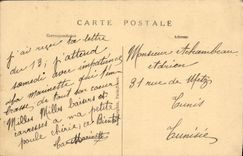 CARTE POSTALE
Correspondance
Adresse
J'ai reçu ta lettre
du 13, j'attend
samedi avec impatience
ta marinette qui t'em-
brasse de tout son cœur
Milles Milles baisers et
caresses a ma petite
poule chérie, a bientôt
ta Marinette
Monsieur Archambeau
31 rue de Metz
Tunis
Tunisie